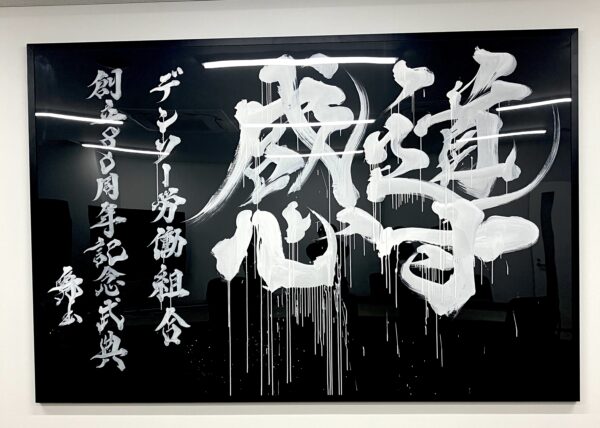 導
感
デンソー労働組合
創立周年記念式典